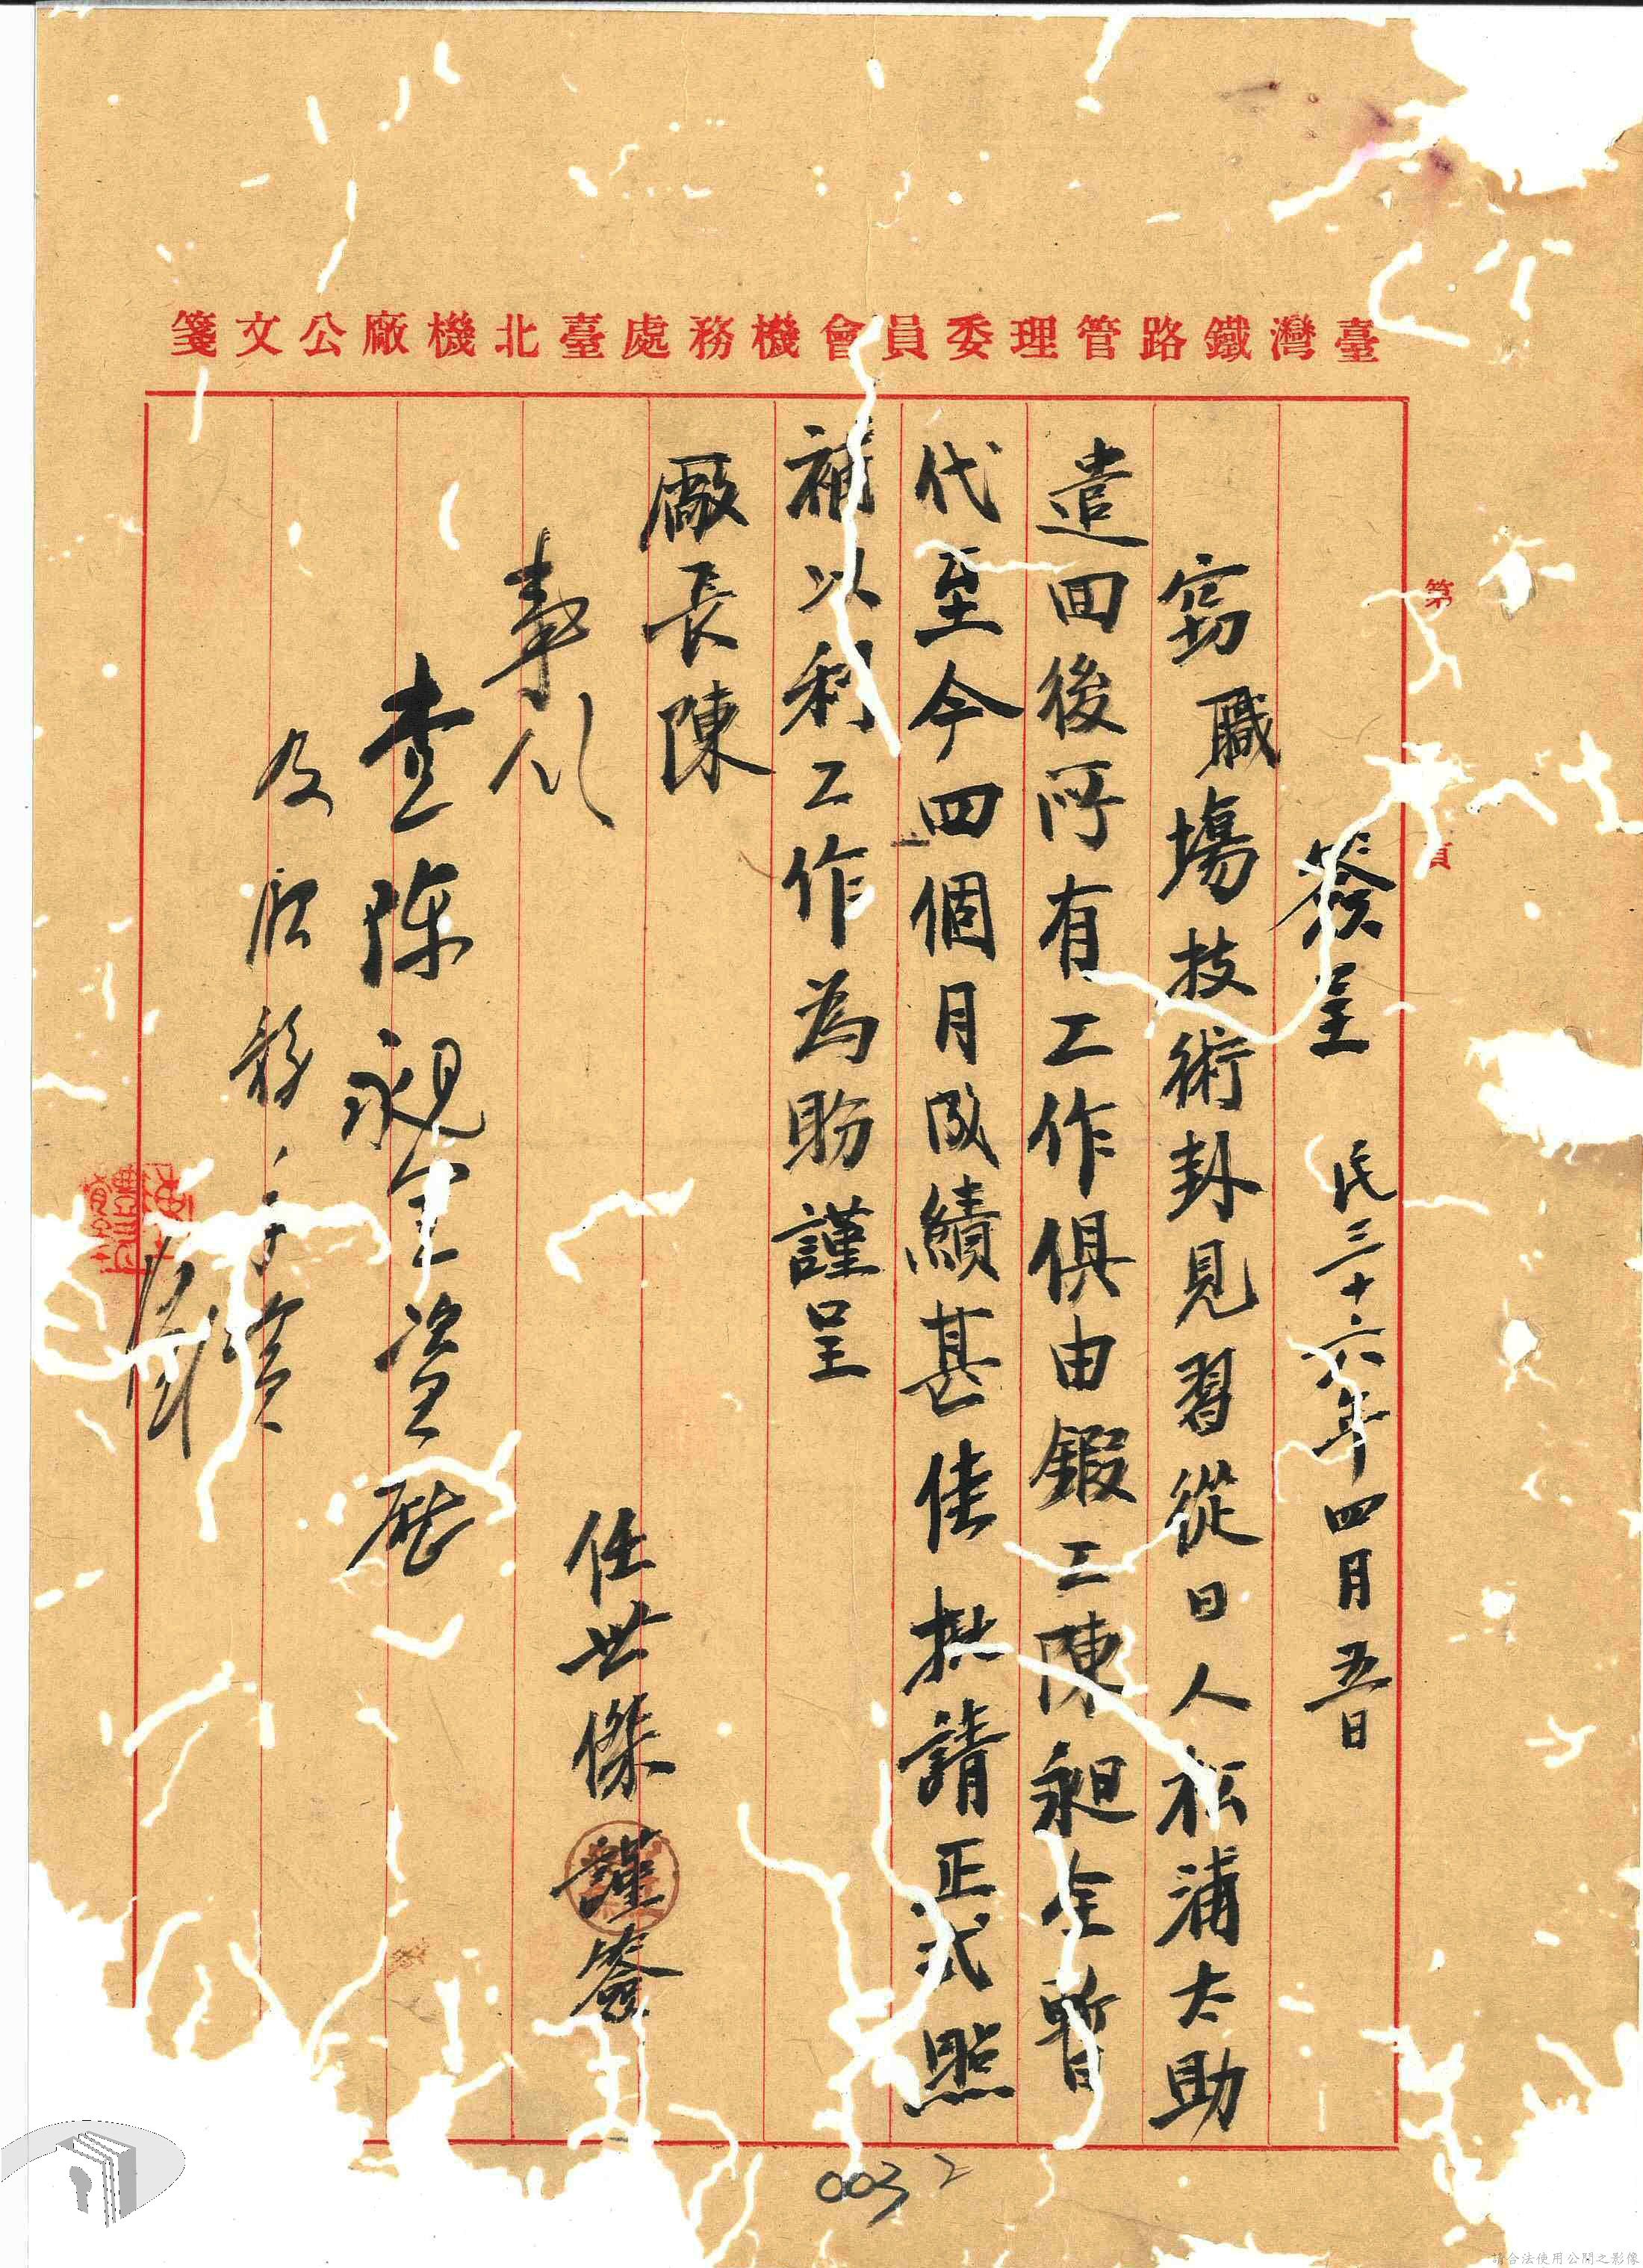 臺灣鐵路管理委員會機務處臺北機廠公文箋
第
頁
簽呈 民三十六年四月五日
竊職場技術卦見習從日人松浦太助
遣回後所有工作俱由鍜工陳昶全暫
代至今四個月成績甚佳擬請正式照
補以利工作為盼謹呈
廠長陳
任世傑謹簽
查陳昶全資歷
及
0032
請合法使用公開之影像